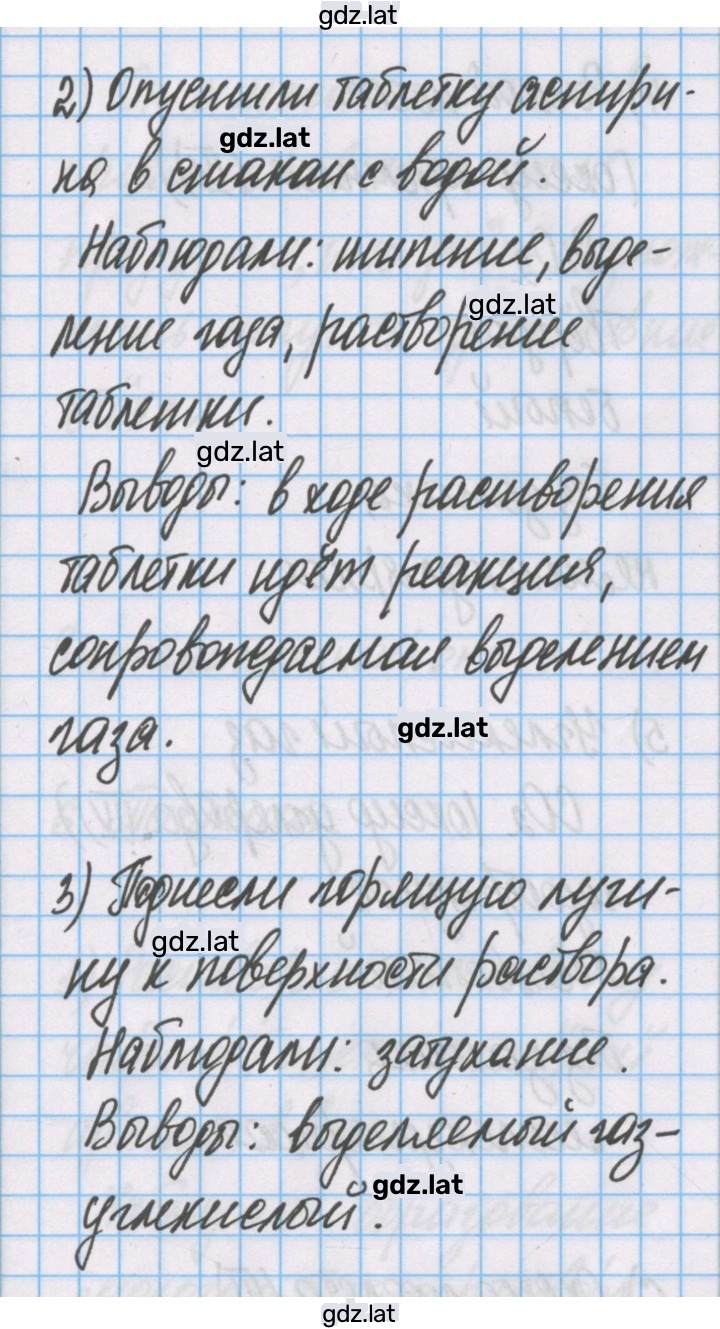 gdz.lat
2) Опустили таблетку аспири-
gdz.lat
на в стакан с водой.
Наблюдали: шипение, выде-
gdz.lat
ление газа, растворение
таблетки.
gdz.lat
Выводы: в ходе растворения
таблетки идёт реакция,
сопровождаемая выделением
газа.
gdz.lat
3) Поднесли горящую лучи-
gdz.lat
ну к поверхности раствора.
Наблюдали: затухание.
Выводы: выделяемый газ-
gdz.lat
углекислый.
gdz.lat